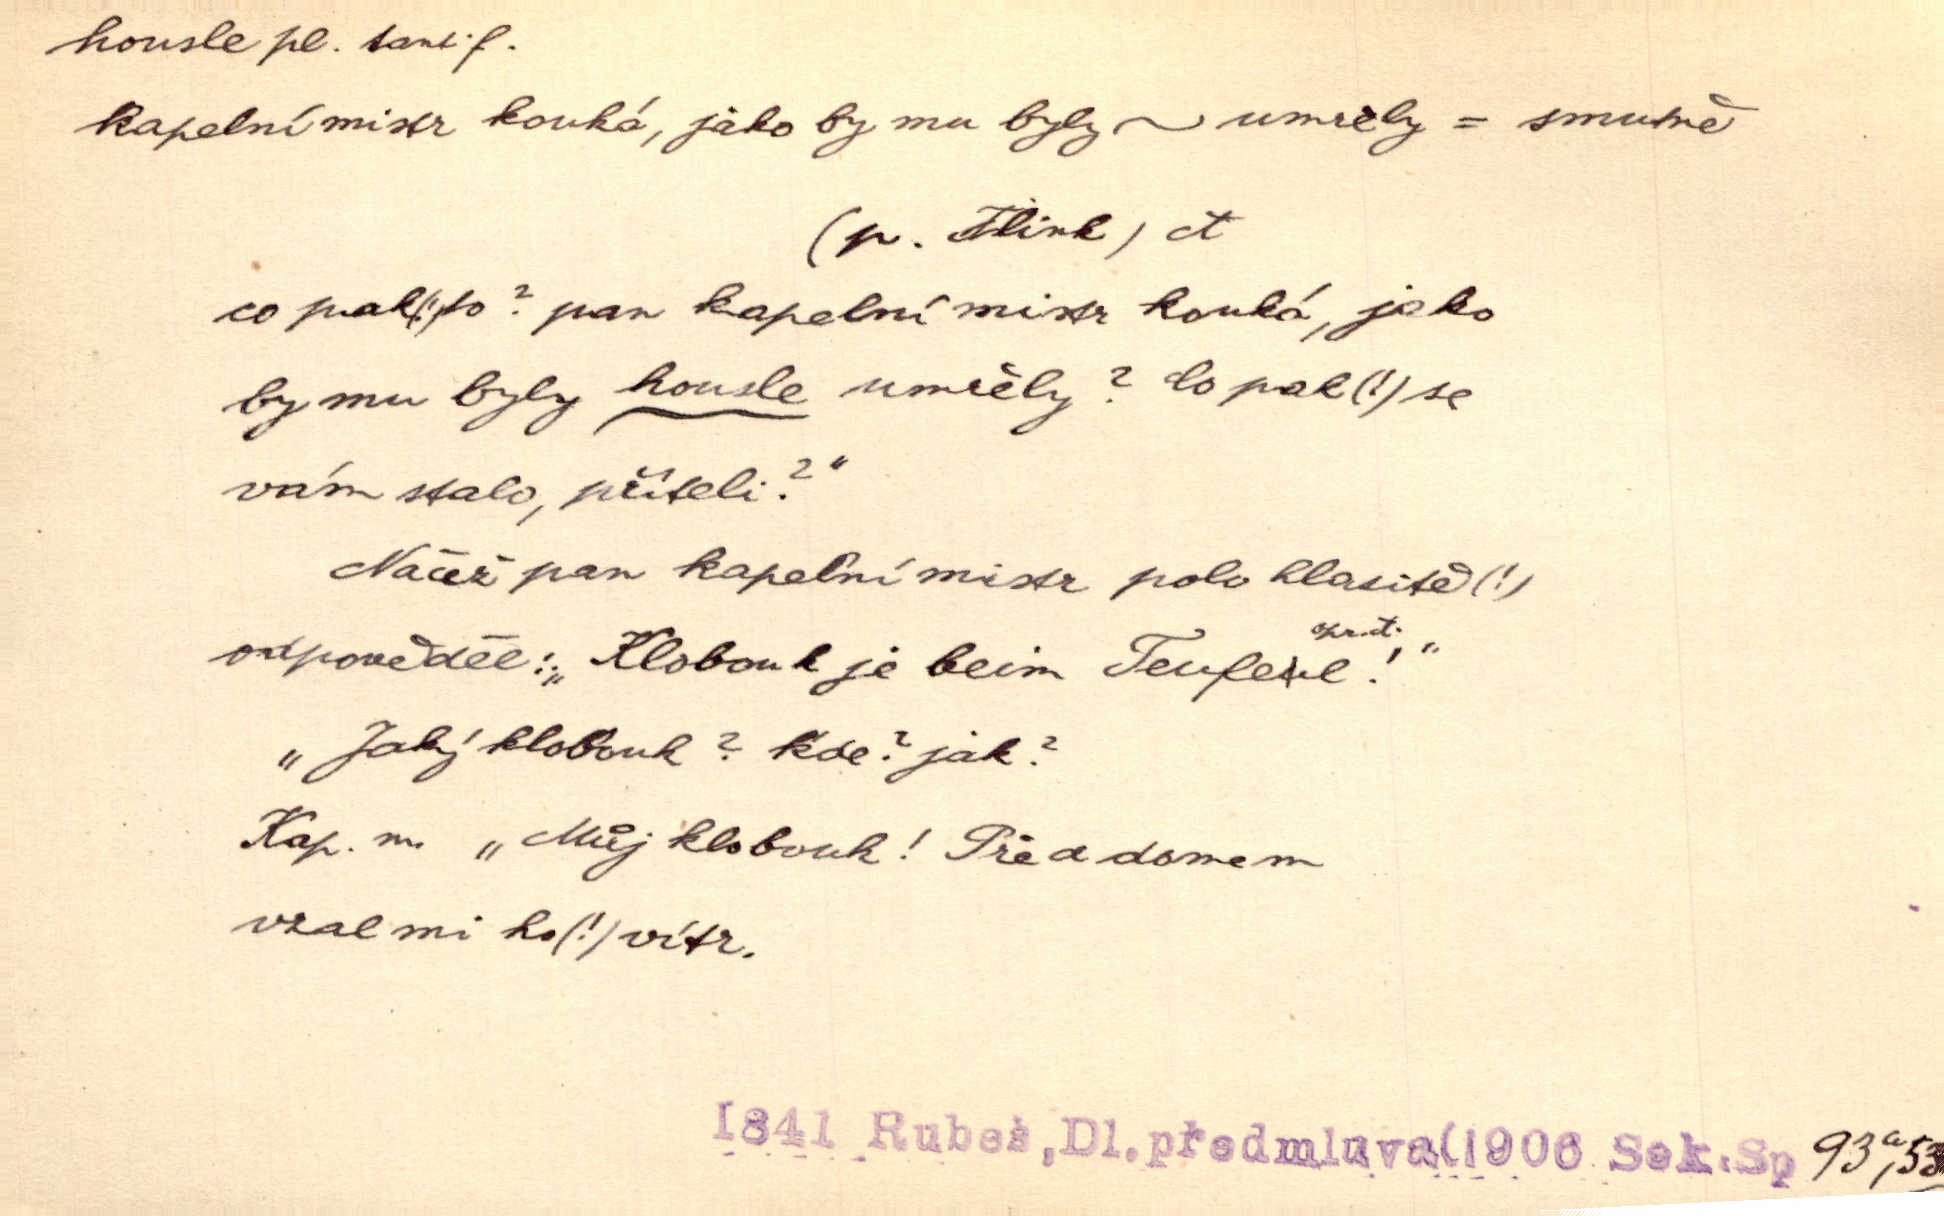 housle pl. tant. f.
kapelní mistr kouká, jako by mu byly ~ umřely = smutně
(p. Flink) ct
co pak(!) to? pan kapelní mistr kouká, jako
by mu byly housle umřely? Co pak(!) se
vám stalo, příteli?“
Načež pan kapelní mistr polo hlasitě(!)
odpověděl: „Klobouk je beim Teufel!“
„Jaký klobouk? kde? jak?
Kap. m. „Můj klobouk! Před domem
vzal mi ho(!) vítr.
1841 Rubeš, Dl. předmluva(1906 Sek.Sp 93a,53